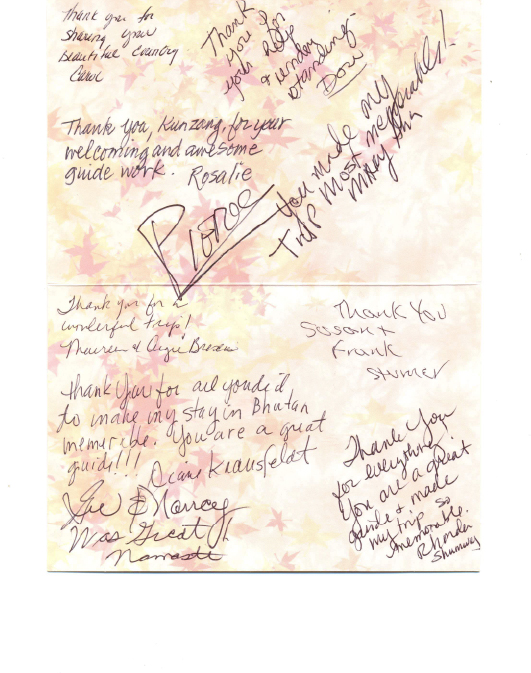 Thank you for
sharing your
beautiful country
Carol
Thank
you for
your help
& under
standing
Dori
Thank you, Kunzang, for your
welcoming and awesome
guide work. Rosalie
You made my
trip most memorable!
Thank you for a
wonderful trip!
Maureen &
Thank You
Susan &
Frank
Thank you for all you did
to make my stay in Bhutan
memorible. You are a great
guide!!! Diane Krausfeldt
& Nancy
Was Great!
Namaste
Thank You
for everything
You are a great
guide & made
my trip so
memorable.
Rhonda
Shumway